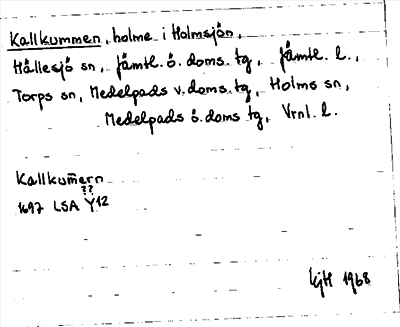 Kallkummen, holme i Holmsjön,
Hällesjö sn, Jämtl. ö. doms. tg, Jämtl. l.,
Torps sn, Medelpads v. doms. tg, Holms sn,
Medelpads ö. doms tg, Vrnl. l.
Kallkum̅ern
??
1697 LSA Y12
1968